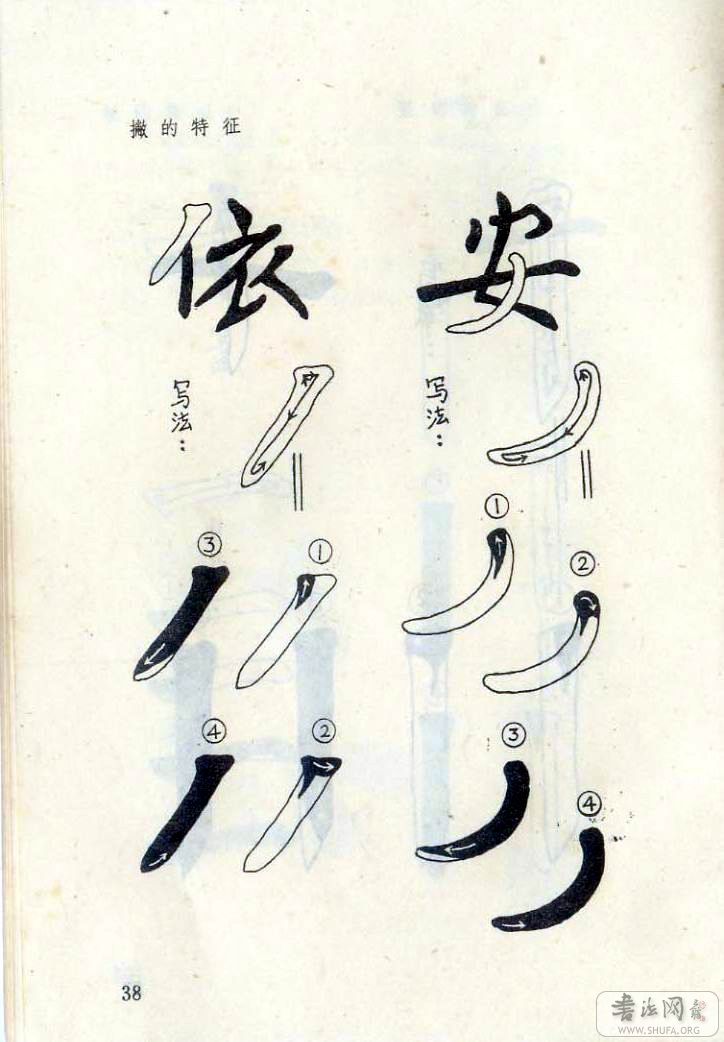 撇的特征
安
写法：
①
②
③
④
依
写法：
①
②
③
④
38
书法网
WWW.SHUFA.ORG